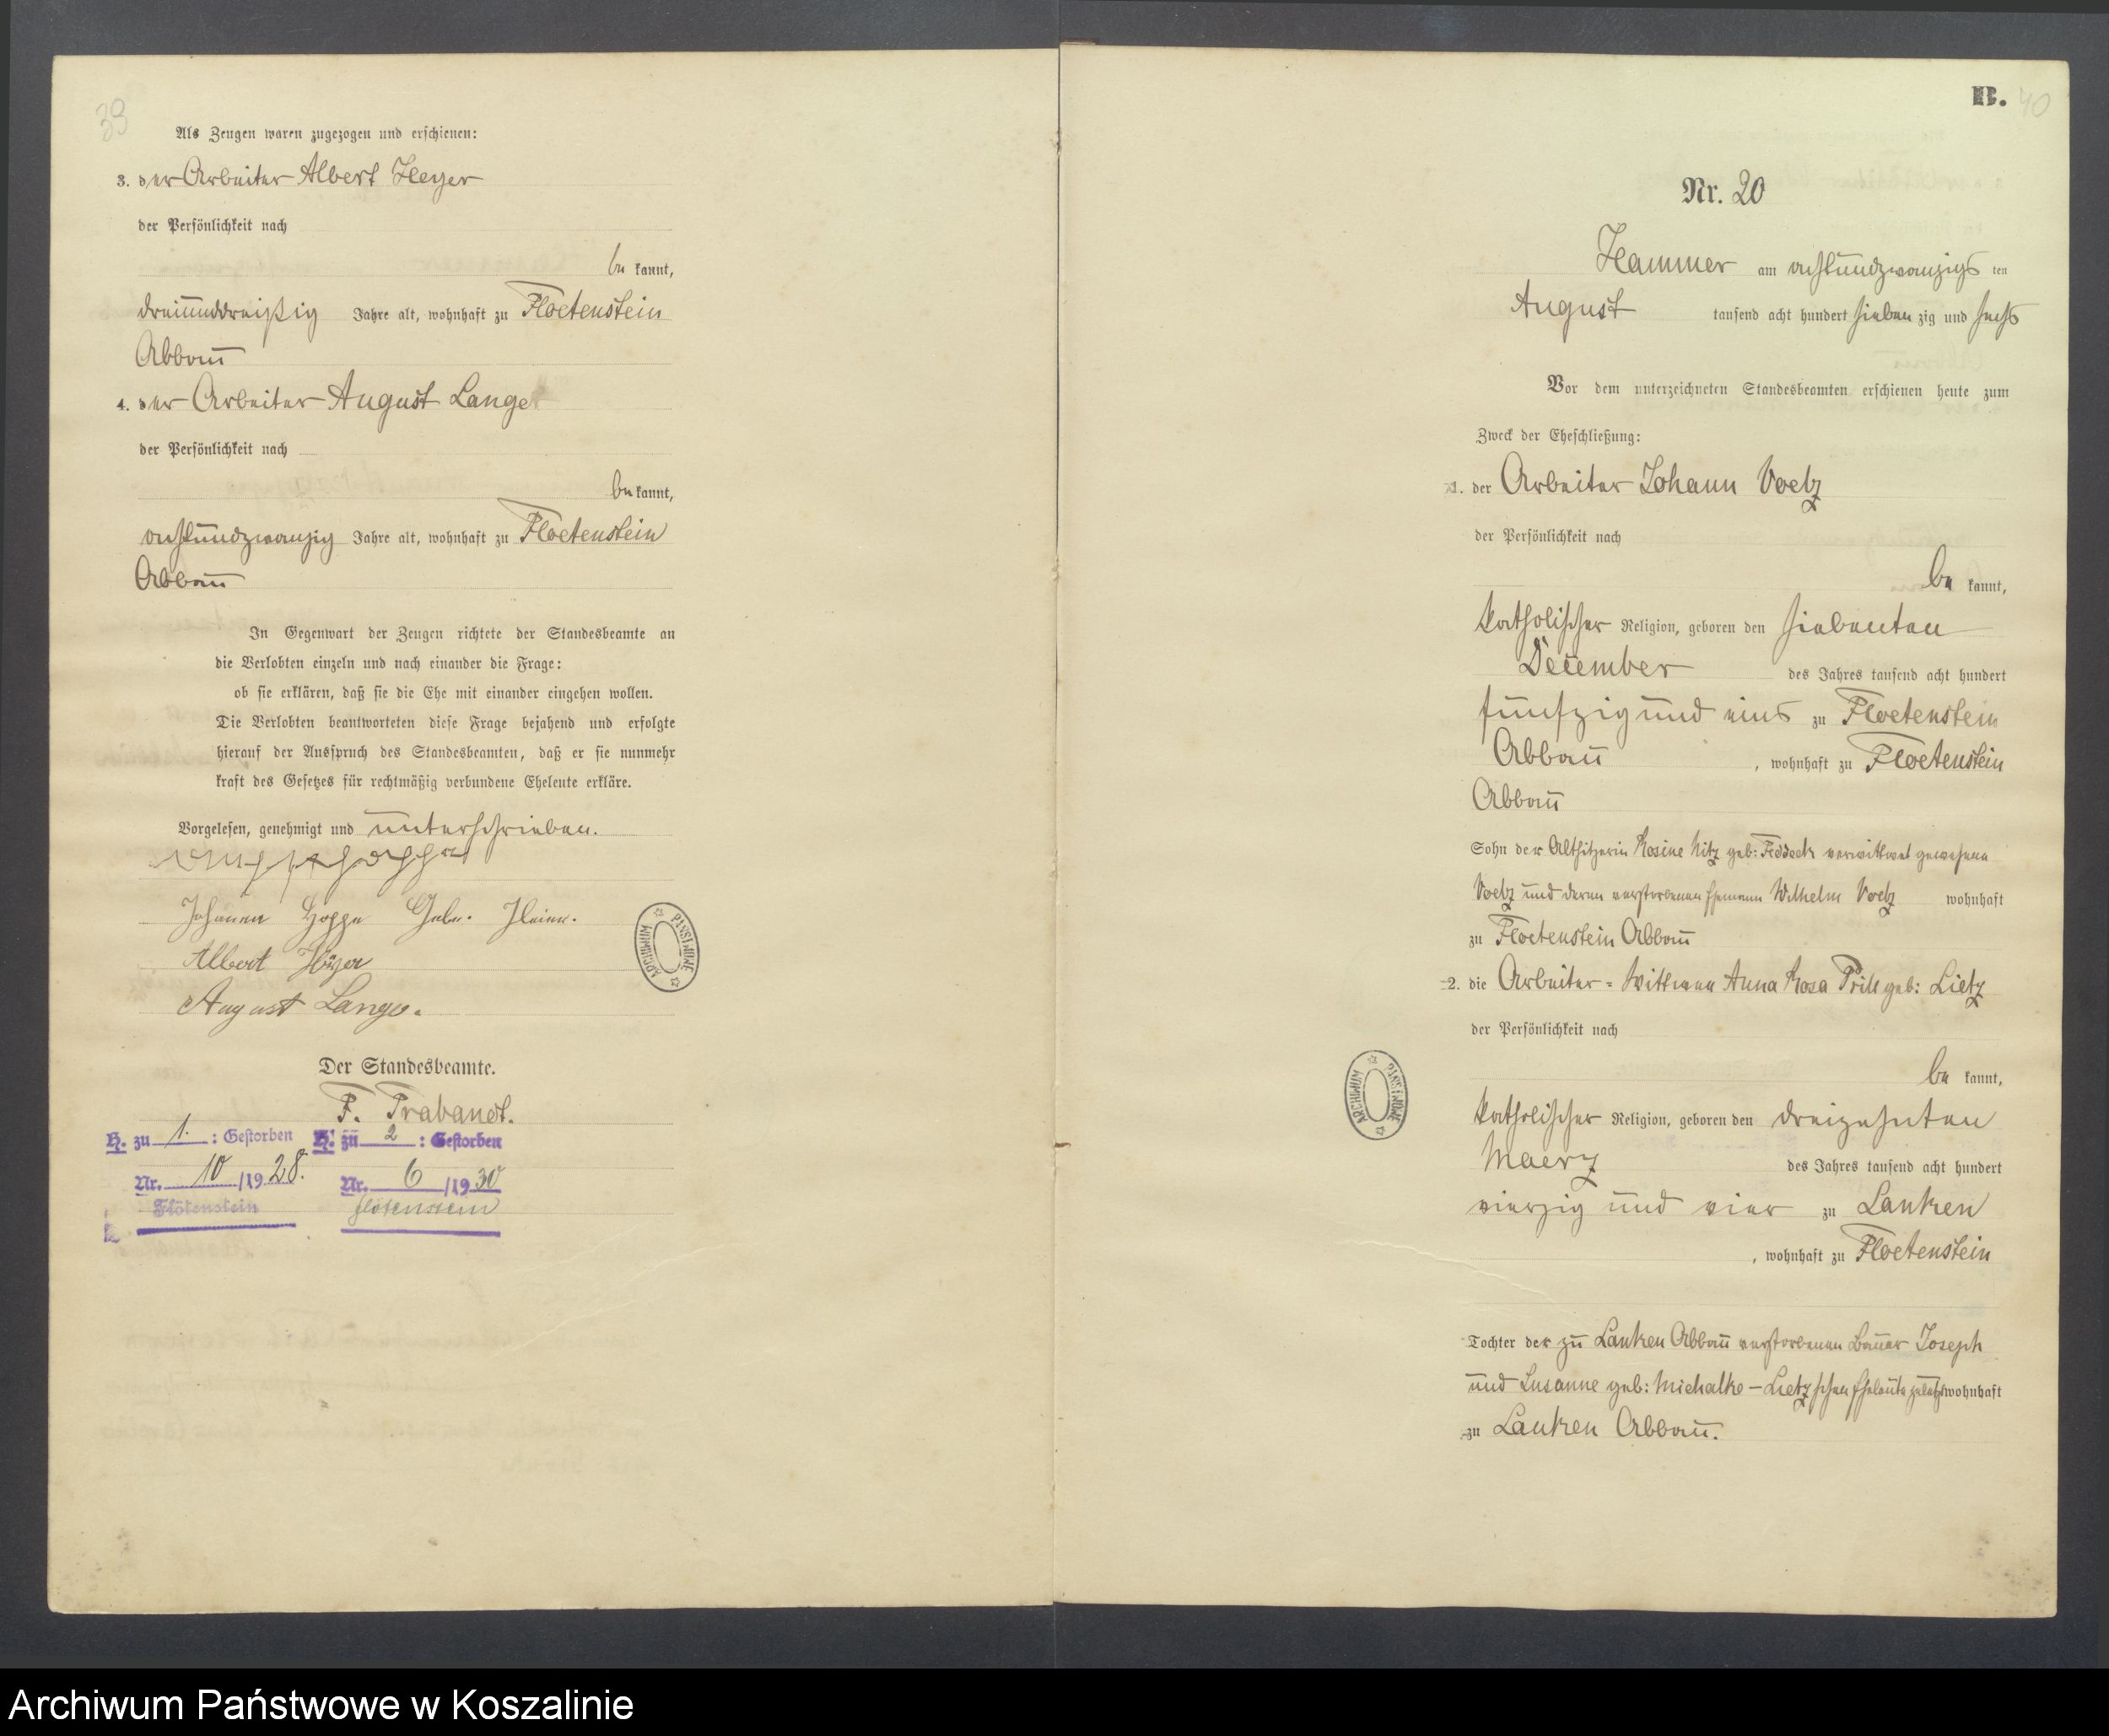 39
Als Zeugen waren zugezogen und erschienen:
3. der Arbeiter Albert Heyer
der Persönlichkeit nach
be kannt,
dreiunddreißig Jahre alt, wohnhaft zu Floetenstein
Abbau
4. der Arbeiter August Lange
der Persönlichkeit nach
be kannt,
achtundzwanzig Jahre alt, wohnhaft zu Floetenstein
Abbau
In Gegenwart der Zeugen richtete der Standesbeamte an
die Verlobten einzeln und nach einander die Frage:
ob sie erklären, daß sie die Ehe mit einander eingehen wollen.
Die Verlobten beantworteten diese Frage bejahend und erfolgte
hierauf der Ausspruch des Standesbeamten, daß er sie nunmehr
kraft des Gesetzes für rechtmäßig verbundene Eheleute erkläre.
Vorgelesen, genehmigt und unterschrieben.
Hoppe
Albert Höyer
August Lange.
ARCHIWUM PAŃSTWOWE
Der Standesbeamte.
F. Prabandt.
H. zu 1. : Gestorben H. zu 2 : Gestorben
Nr. 10 /19 28. Nr. 6 /19 30
Flötenstein Flötenstein
B. 40
Nr. 20
Hammer am achtundzwanzigs ten
August tausend acht hundert sieben zig und sechs
Vor dem unterzeichneten Standesbeamten erschienen heute zum
Zweck der Eheschließung:
1. der Arbeiter Johann Voelz
der Persönlichkeit nach
be kannt,
katholischer Religion, geboren den siebenten
December des Jahres tausend acht hundert
fünfzig und eins zu Floetenstein
Abbau , wohnhaft zu Floetenstein
Abbau
Sohn der Altsitzerin Rosine Nitz geb: Feddeck verwittwet gewesene
Voelz und deren verstorbenen Ehemann Wilhelm Voelz wohnhaft
zu Floetenstein Abbau
2. die Arbeiter = Wittwe Anna Rosa Prill geb: Lietz
der Persönlichkeit nach
be kannt,
katholischer Religion, geboren den dreizehnten
Maerz des Jahres tausend acht hundert
vierzig und vier zu Lanken
, wohnhaft zu Floetenstein
ARCHIWUM PAŃSTWOWE
Tochter der zu Lanken Abbau verstorbenen Bauer Joseph
und Susanne geb: Michalke - Lietz schen Eheleute zuletzt wohnhaft
zu Lanken Abbau.
Archiwum Państwowe w Koszalinie